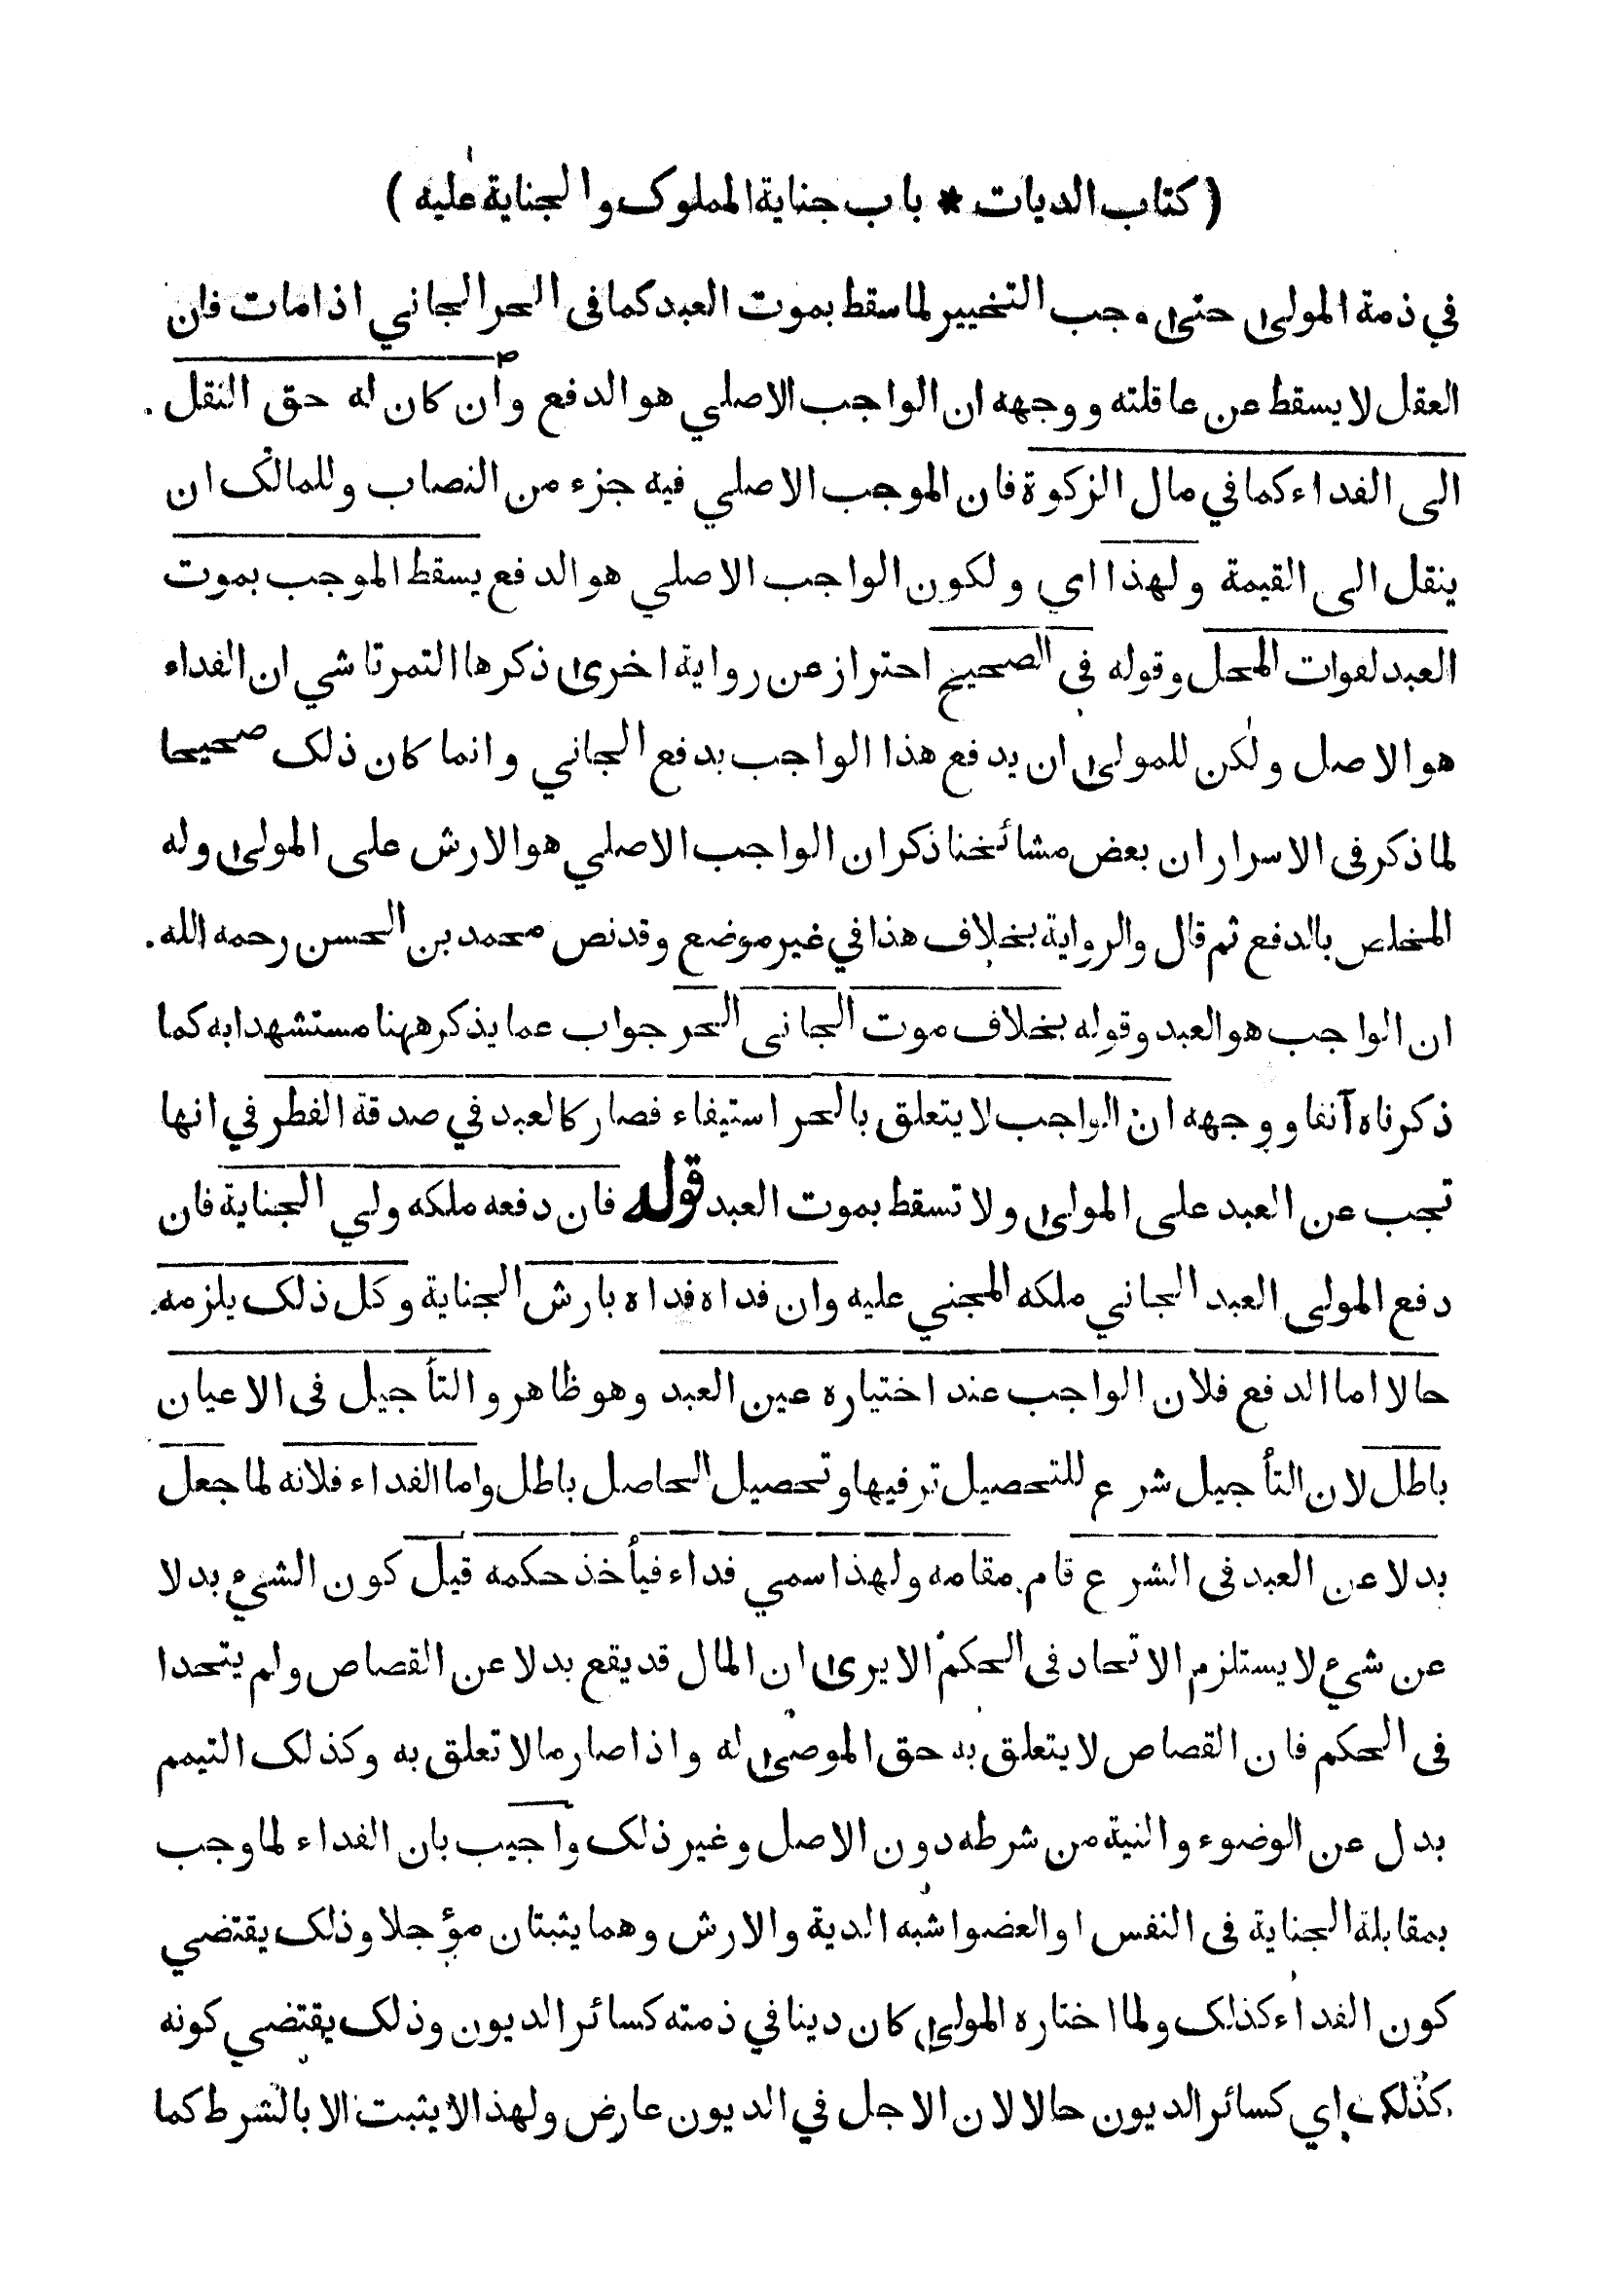 ( كتاب الديات * باب جناية المملوك والجناية عليه )
في ذمة المولى حتى وجب التخيير لما سقط بموت العبد كما فى الحر الجاني اذا مات فان
العقل لا يسقط عن عاقلته ووجهه ان الواجب الاصلي هو الدفع وان كان له حق النقل
الى الفداء كما في مال الزكوة فان الموجب الاصلي فيه جزء من النصاب وللمالك ان
ينقل الى القيمة ولهذا اي ولكون الواجب الاصلي هو الدفع يسقط الموجب بموت
العبد لفوات المحل وقوله فى الصحيح احتراز عن رواية اخرى ذكرها التمرتاشي ان الفداء
هو الاصل ولكن للمولى ان يدفع هذا الواجب بدفع الجاني وانما كان ذلك صحيحا
لما ذكر فى الاسرار ان بعض مشائخنا ذكر ان الواجب الاصلي هو الارش على المولى وله
المخلص بالدفع ثم قال والرواية بخلاف هذا في غير موضع وقد نص محمد بن الحسن رحمه الله
ان الواجب هو العبد وقوله بخلاف موت الجانى الحر جواب عما يذكر ههنا مستشهدا به كما
ذكرناه آنفا ووجهه ان الواجب لا يتعلق بالحر استيفاء فصار كالعبد في صدقة الفطر في انها
تجب عن العبد على المولى ولا تسقط بموت العبد قوله فان دفعه ملكه ولي الجناية فان
دفع المولى العبد الجاني ملكه المجني عليه وان فداه فداه بارش الجناية وكل ذلك يلزمه
حالا اما الدفع فلان الواجب عند اختياره عين العبد وهو ظاهر والتأجيل فى الاعيان
باطل لان التأجيل شرع للتحصيل ترفيها وتحصيل الحاصل باطل واما الفداء فلانه لما جعل
بدلا عن العبد فى الشرع قام مقامه ولهذا سمي فداء فيأخذ حكمه قيل كون الشيء بدلا
عن شيء لا يستلزم الاتحاد فى الحكم الا يرى ان المال قد يقع بدلا عن القصاص ولم يتحدا
فى الحكم فان القصاص لا يتعلق به حق الموصى له واذا صار مالا تعلق به وكذلك التيمم
بدل عن الوضوء والنية من شرطه دون الاصل وغير ذلك واجيب بان الفداء لما وجب
بمقابلة الجناية فى النفس او العضو اشبه الدية والارش وهما يثبتان مؤجلا وذلك يقتضي
كون الفداء كذلك ولما اختاره المولى كان دينا في ذمته كسائر الديون وذلك يقتضي كونه
كذلك اي كسائر الديون حالا لان الاجل في الديون عارض ولهذا لا يثبت الا بالشرط كما